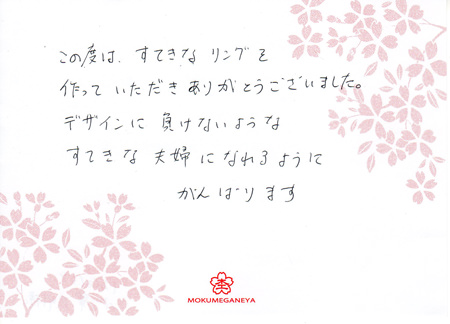 この度は、すてきな リングを
作って いただき ありがとうございました。
デザインに 負けないような
すてきな 夫婦 になれるように
がんばります
MOKUMEGANEYA